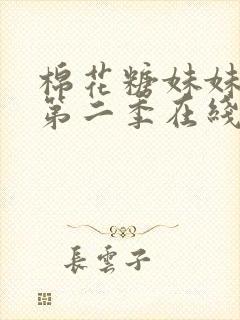 棉花糖妹妹
第二季在綫
長雲子